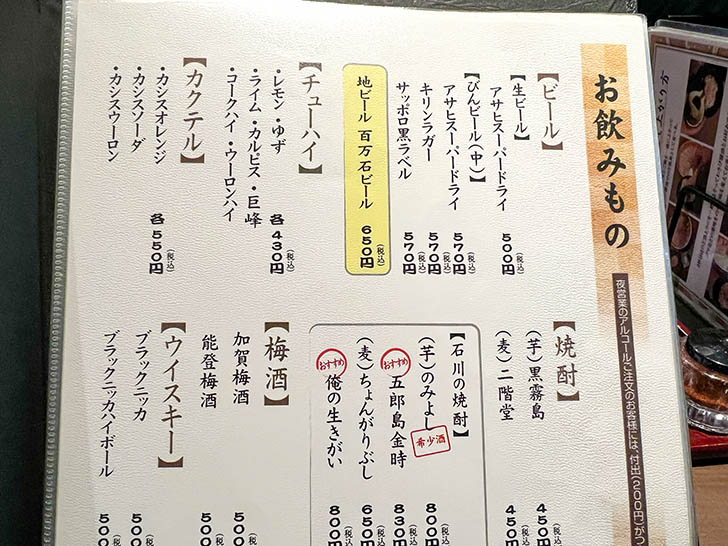 お飲みもの
夜営業のアルコールご注文のお客様には、付出(200円)がつ
【ビール】
【生ビール】
アサヒスーパードライ 500円(税込)
【びんビール(中)】
アサヒスーパードライ 570円(税込)
キリンラガー 570円
サッポロ黒ラベル 570円
地ビール 百万石ビール 650円(税込)
【チューハイ】
・レモン・ゆず
・ライム・カルピス・巨峰
・コークハイ・ウーロンハイ
各430円(税込)
【カクテル】
・カシスオレンジ
・カシスソーダ
・カシスウーロン
各550円(税込)
【焼酎】
(芋)黒霧島 450円
(麦)二階堂 450円
【石川の焼酎】
(芋)のみよし 希少酒 800円
おすすめ 五郎島金時 830円(税
(麦)ちょんがりぶし 650円(税
おすすめ 俺の生きがい 800円(税
【梅酒】
加賀梅酒 500(税
能登梅酒 500(税
【ウイスキー】
ブラックニッカ 500(税
ブラックニッカハイボール 500